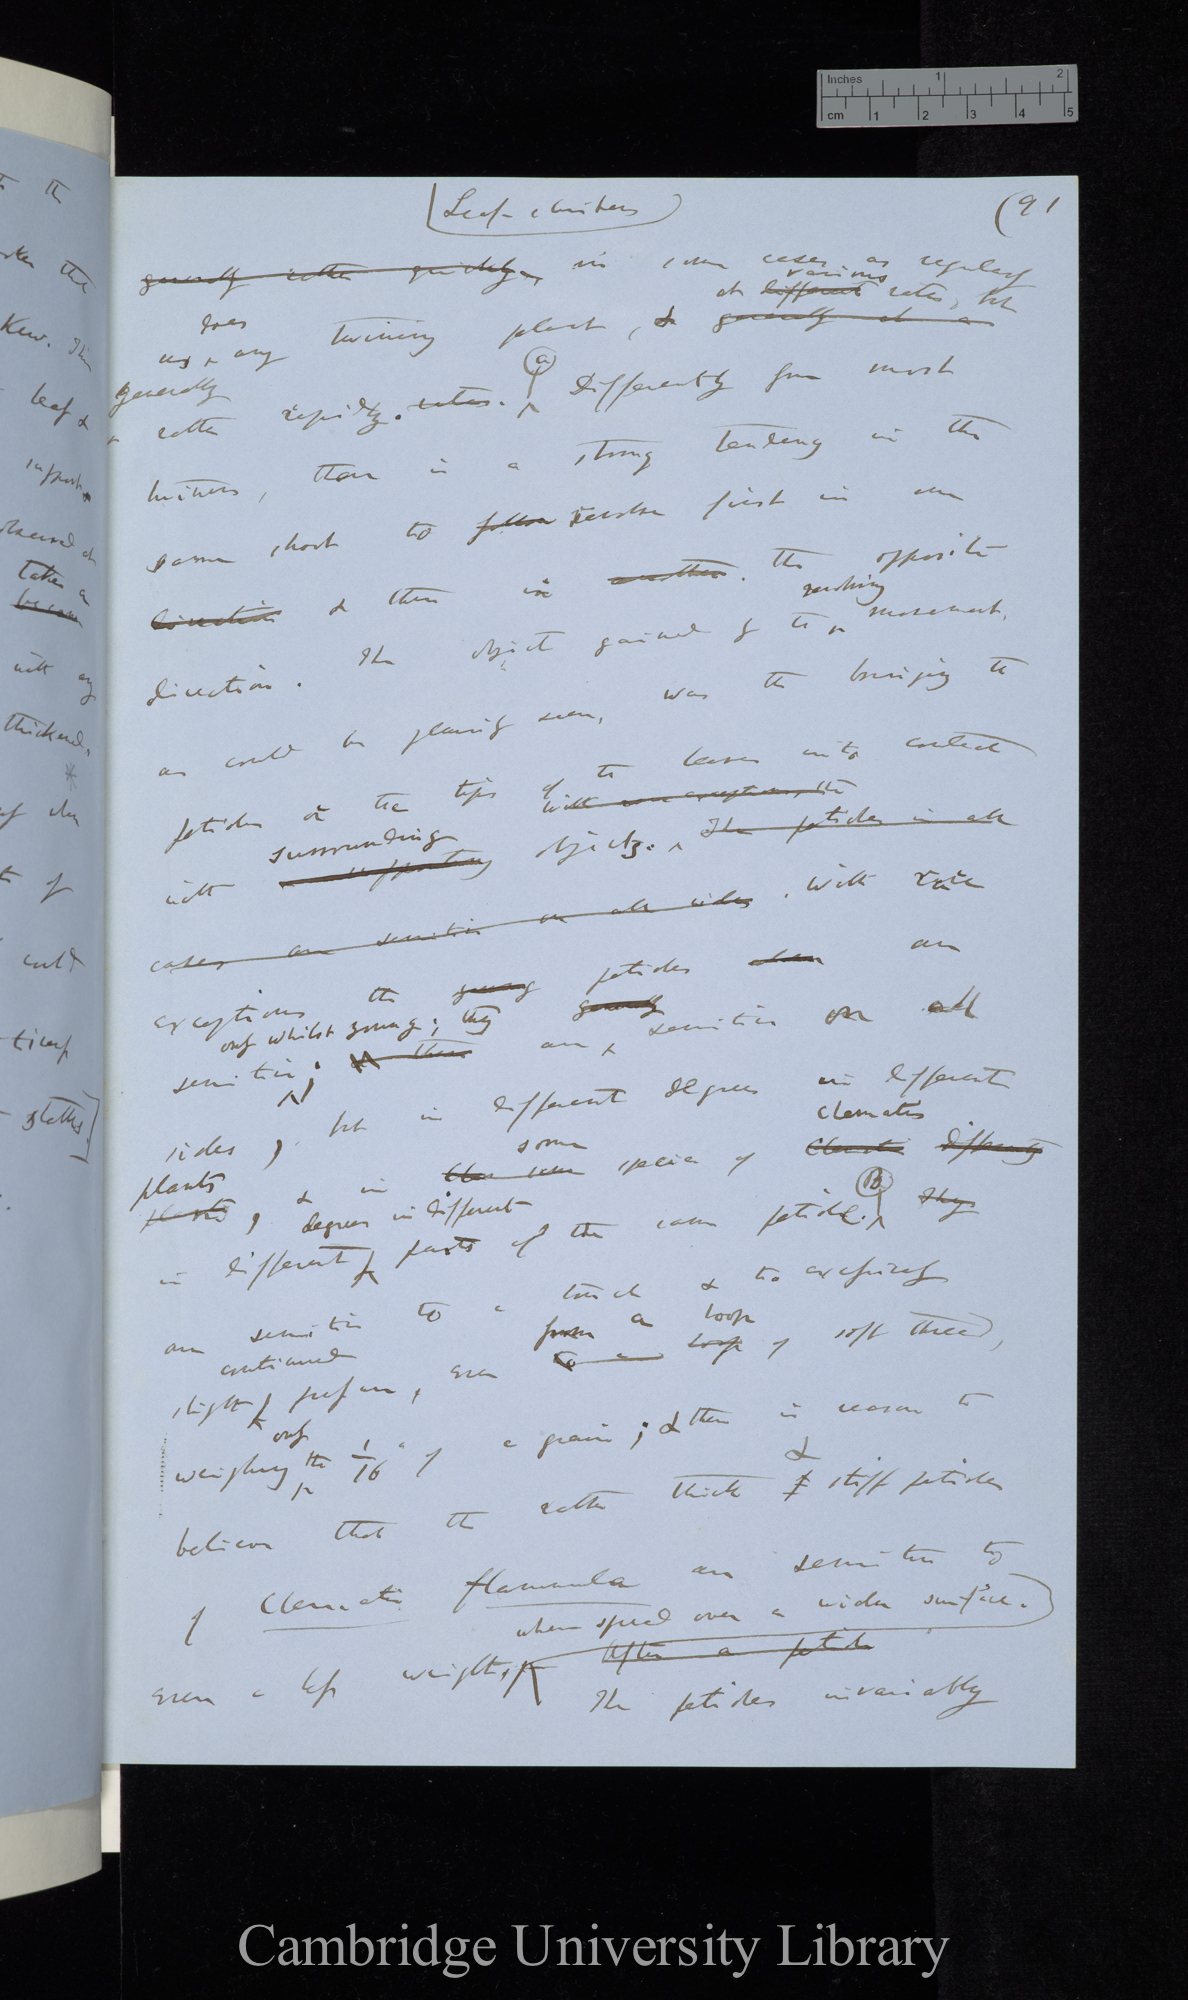 Leaf-climbers
(91
generally rather quickly, in some cases as regularly
various
at different rates, but
does
as any twining plant, & generally at a
generally
(a)
rather rapidly. rates. Differently from most
twiners, there is a strong tendency in the
same shoot to follow revolve first in one
direction & then in another. the opposite
revolving
direction. The object gained by the movement,
as could be plainly seen, was the bringing the
petioles or the tips of the leaves into contact
surrounding
with rare exceptions, the
with supporting objects. The petioles in all
cases are sensitive on all sides. With rare
exceptions the young petioles when are
only whilst young; they generally
sensitive; & then are sensitive on all
sides, but in different degrees in different
plants
some
Clematis
plants, & in species of Clematis differently
degrees in different
(B)
in different parts of the same petiole. They
are sensitive to a touch & to excessively
continued
from a loop
slight pressure, even to a loop of soft thread,
only
weighing the 1/16th of a grain; & there is reason to
&
believe that the rather thick & stiff petioles
of Clematis flammula are sensitive to
when spread over a wider surface.
even a less weight, After a petiole
The petioles invariably
to the
the
Kew. This
leaf &
support
observed at
taken a
become
with any
thickened,
of
could
Inches 1 2
cm 1 2 3 4 5
Cambridge University Library